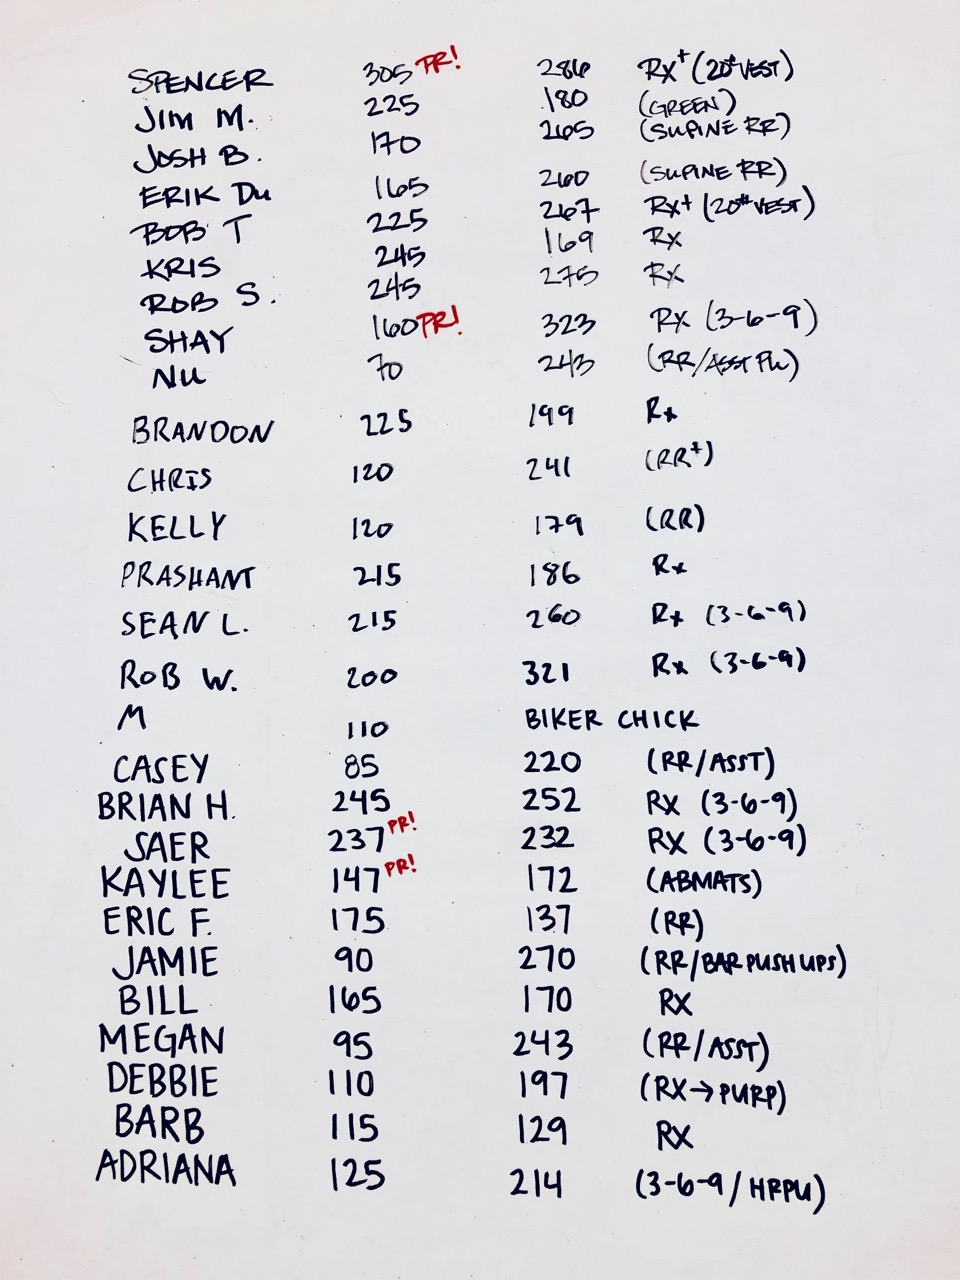 SPENCER 305 PR! 286 Rx+ (20# VEST)
JIM M. 225 180 (GREEN)
JOSH B. 170 265 (SUPINE RR)
ERIK DU 165 260 (SUPINE RR)
BOB T 225 267 Rx+ (20# VEST)
KRIS 245 169 Rx
ROB S. 245 275 Rx
SHAY 160 PR! 323 Rx (3-6-9)
NU 70 243 (RR/ASST PU)
BRANDON 225 199 Rx
CHRIS 120 241 (RR+)
KELLY 120 179 (RR)
PRASHANT 215 186 Rx
SEAN L. 215 260 Rx (3-6-9)
ROB W. 200 321 Rx (3-6-9)
M 110 BIKER CHICK
CASEY 85 220 (RR/ASST)
BRIAN H. 245 252 RX (3-6-9)
SAER 237 PR! 232 RX (3-6-9)
KAYLEE 147 PR! 172 (ABMATS)
ERIC F. 175 137 (RR)
JAMIE 90 270 (RR/BAR PUSH UPS)
BILL 165 170 RX
MEGAN 95 243 (RR/ASST)
DEBBIE 110 197 (RX→PURP)
BARB 115 129 RX
ADRIANA 125 214 (3-6-9/HRPU)